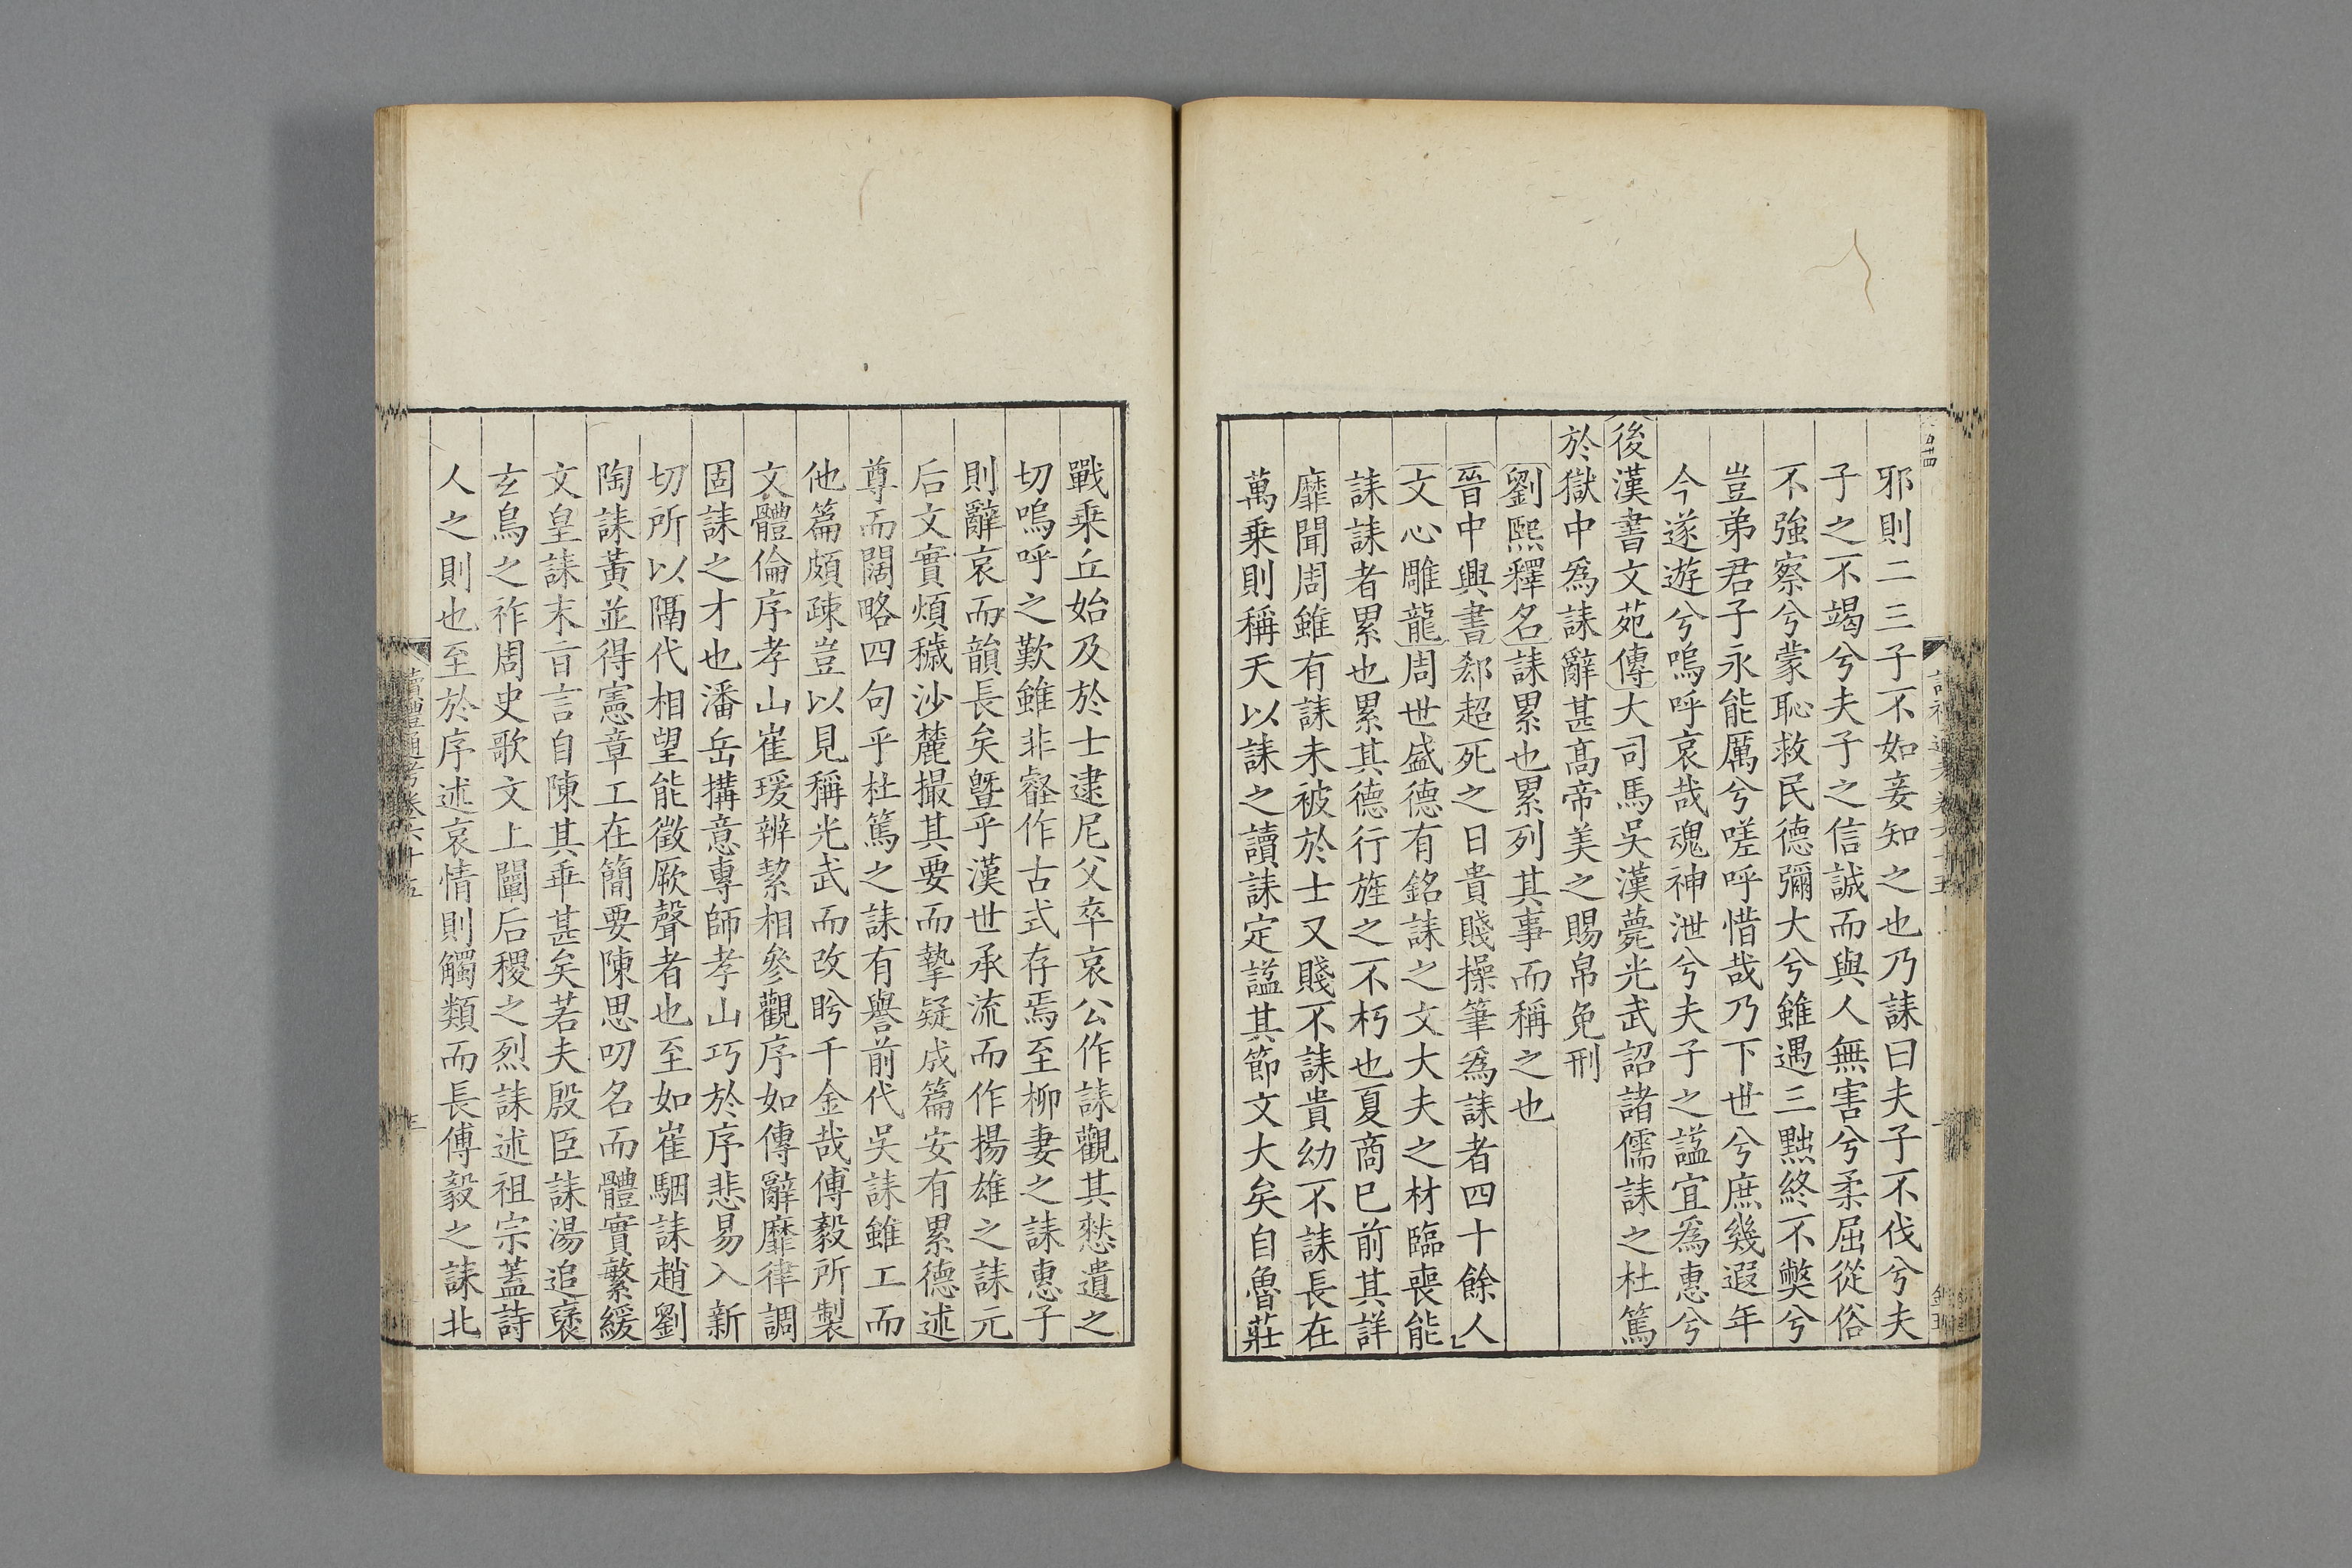 邪則二三子不如妾知之也乃誄曰夫子不伐兮夫
子之不竭兮夫子之信誠而與人無害兮柔屈從俗
不強察兮蒙恥救民德彌大兮雖遇三黜終不獘兮
豈弟君子永能厲兮嗟呼惜哉乃下世兮庶幾遐年
今遂遊兮嗚呼哀哉魂神泄兮夫子之諡宜爲惠兮
後漢書文苑傳大司馬吳漢薨光武詔諸儒誄之杜篤
於獄中爲誄辭甚高帝美之賜帛免刑
劉熙釋名誄累也累列其事而稱之也
晉中興書郄超死之日貴賤操筆爲誄者四十餘人
文心雕龍周世盛德有銘誄之文大夫之材臨喪能
誄誄者累也累其德行旌之不朽也夏商已前其詳
靡聞周雖有誄未被於士又賤不誄貴幼不誄長在
萬乗則稱天以誄之讀誄定諡其節文大矣自魯莊
戰乗丘始及於士逮尼父卒哀公作誄觀其憖遺之
切嗚呼之歎雖非叡作古式存焉至柳妻之誄惠子
則辭哀而韻長矣曁乎漢世承流而作揚雄之誄元
后文實煩穢沙麓撮其要而摯疑成篇安有累德述
尊而闊略四句乎杜篤之誄有譽前代吳誄雖工而
他篇頗疎豈以見稱光武而改盼千金哉傅毅所製
文體倫序孝山崔瑗辨絜相參觀序如傳辭靡律調
固誄之才也潘岳搆意專師孝山巧於序悲易入新
切所以隔代相望能徵厥聲者也至如崔駰誄趙劉
陶誄黃並得憲章工在簡要陳思叨名而體實繁緩
文皇誄末百言自陳其乖甚矣若夫殷臣誄湯追襃
玄鳥之祚周史歌文上闡后稷之烈誄述祖宗蓋詩
人之則也至於序述哀情則觸類而長傅毅之誄北
讀禮通考卷六十五